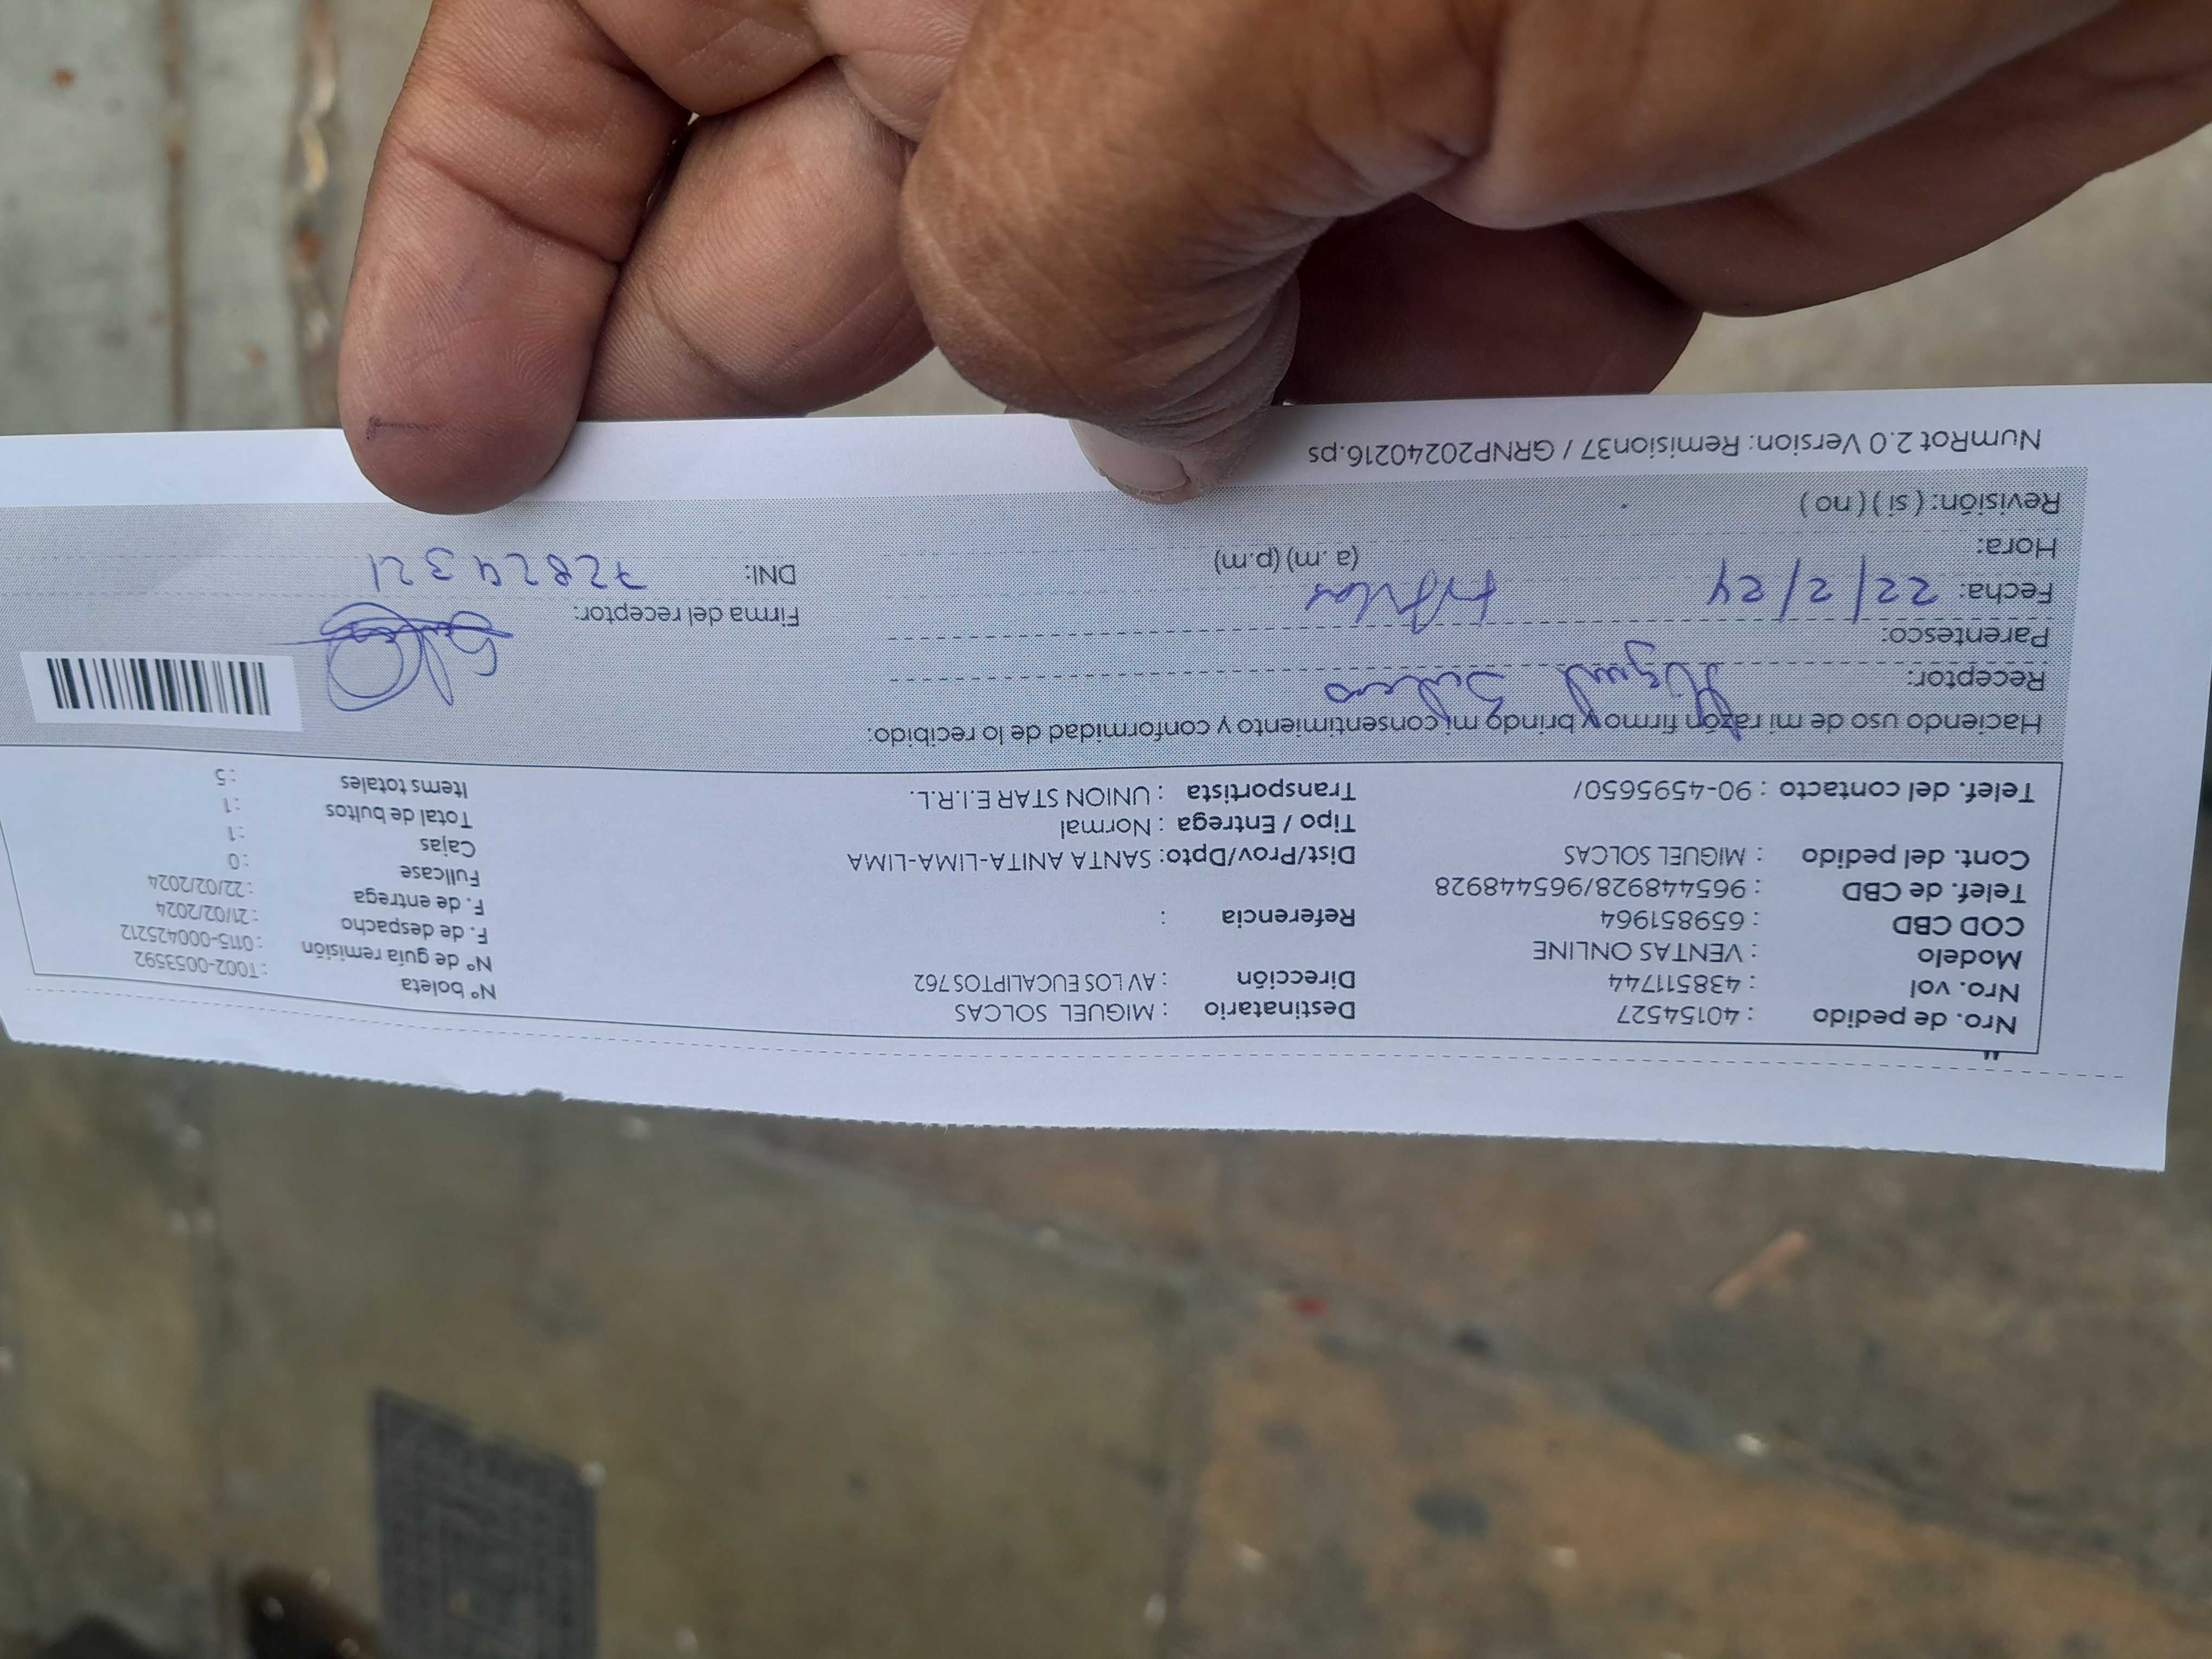 Nro. de pedido : 40154527 Destinatario : MIGUEL SOLCAS Nº boleta : T002-0053592
Nro. vol : 438511744 Dirección : AV LOS EUCALIPTOS 762 Nº de guía remisión : 0115-000425212
Modelo : VENTAS ONLINE F. de despacho : 21/02/2024
COD CBD : 659851964 Referencia : F. de entrega : 22/02/2024
Telef. de CBD : 965448928/965448928 Fullcase : 0
Cont. del pedido : MIGUEL SOLCAS Dist/Prov/Dpto: SANTA ANITA-LIMA-LIMA Cajas : 1
Tipo / Entrega : Normal Total de bultos : 1
Telef. del contacto : 90-4595650/ Transportista : UNION STAR E.I.R.L. Items totales : 5
Haciendo uso de mi razón firmo y brindo mi consentimiento y conformidad de lo recibido:
Receptor: Miguel
Parentesco: Firma del receptor:
Fecha: 22/2/24
Hora: (a. m) (p.m) DNI: 72824321
Revisión: ( si ) ( no )
NumRot 2.0 Version: Remision37 / GRNP20240216.ps